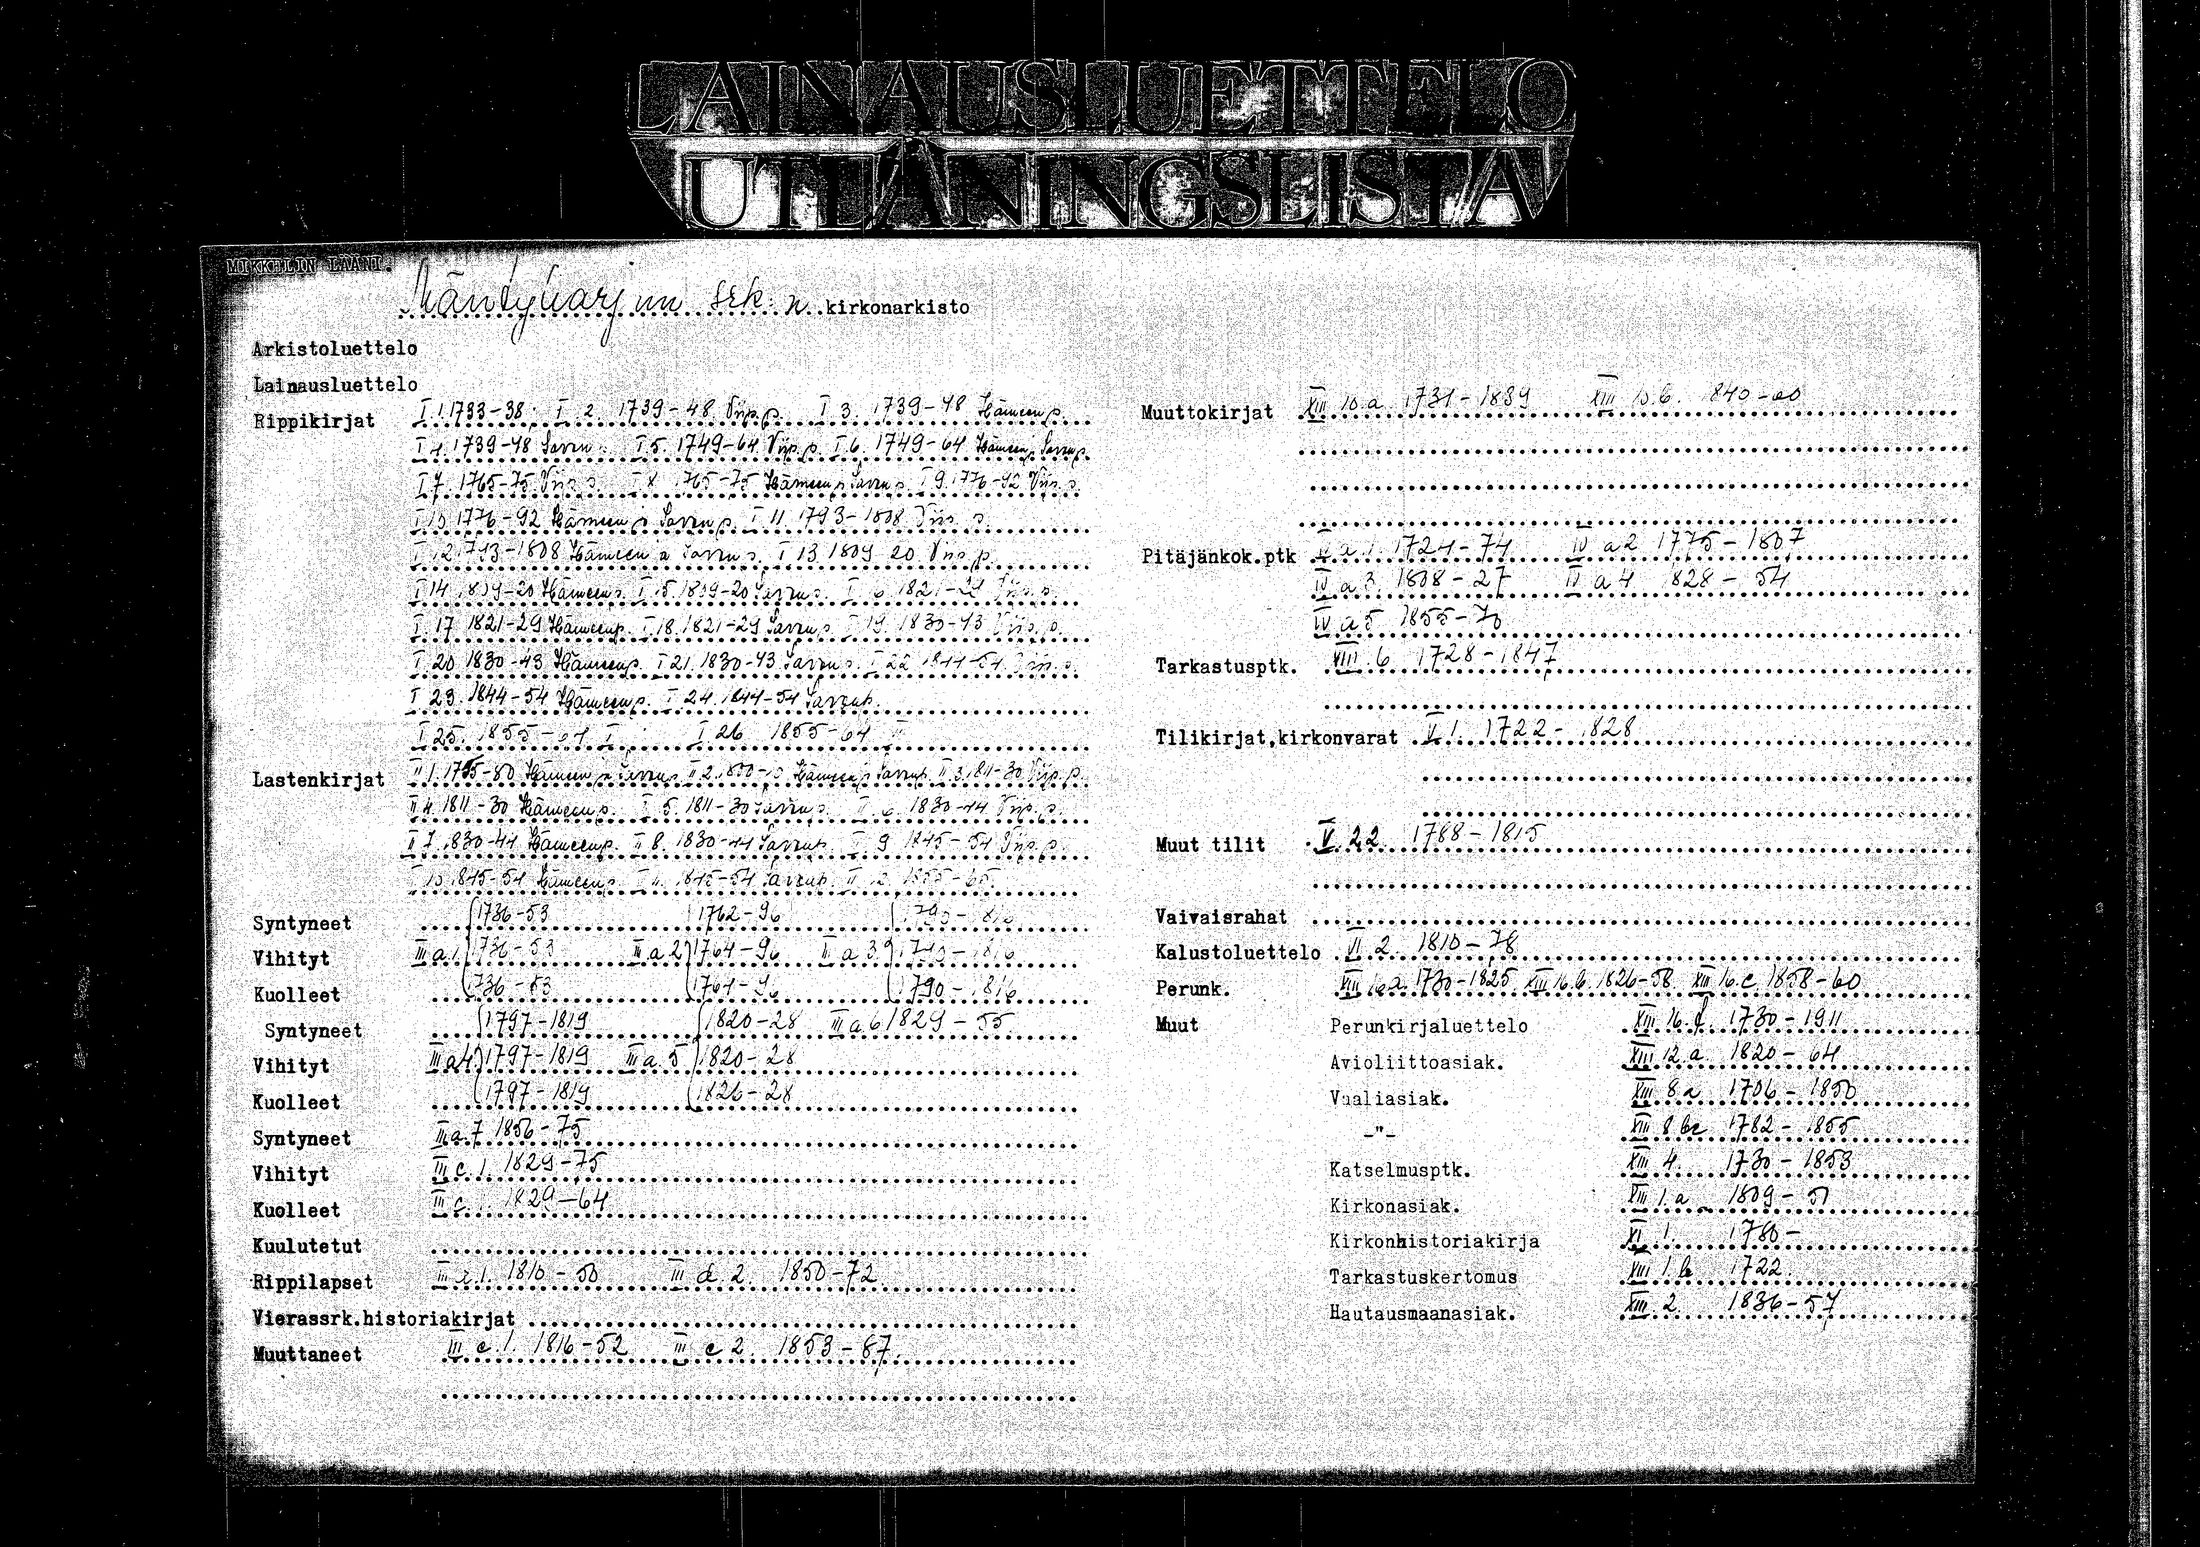 LAINAUSLUETTELO
UTLÅNINGSLISTA
MIKKELIN LÄÄNI.
Mäntyharjun srk:n kirkonarkisto
Arkistoluettelo
Lainausluettelo
Rippikirjat I 1. 1733-38. I 2. 1739-48 Viip.p. I 3. 1739-48 Hämeenp.
I 4. 1739-48 Savon I 5. 1749-64 Viip.p. I 6. 1749-64 Hämeen ja Savonp.
I 7. 1765-75 Viip.p. I 8. 1765-75 Hämeen ja Savon p. I 9. 1776-92 Viip.p.
I 10. 1776-92 Hämeen ja Savon p. I 11. 1793-1808 Viip.p.
I 12. 1793-1808 Hämeen ja Savon p. I 13 1809-20 Viip.p.
I 14. 1809-20 Hämeenp. I 15. 1809-20 Savonp. I 16. 1821-29 Viip.p.
I 17 1821-29 Hämeenp. I 18. 1821-29 Savonp. I 19. 1830-43 Viip.p.
I 20 1830-43 Hämeenp. I 21. 1830-43 Savonp. I 22 1844-54 Viip.p.
I 23. 1844-54 Hämeenp. I 24. 1844-54 Savonp.
I 25. 1855-64 I I 26 1855-64 II
Lastenkirjat II 1. 1755-80 Hämeen ja Savonp. II 2. 1800-10 Hämeen ja Savonp. II 3. 1811-30 Viip.p.
II 4. 1811-30 Hämeenp. II 5. 1811-30 Savonp. II 6. 1830-44 Viip.p.
II 7. 1830-44 Hämeenp. II 8. 1830-44 Savonp. II 9 1845-54 Viip.p.
II 10. 1845-54 Hämeenp. II 11. 1845-54 Savonp. II 12. 1855-65.
Syntyneet 1736-53 1762-96 1790-1816
Vihityt III a 1 1736-53 III a 2 1764-96 III a 3 1790-1816
Kuolleet 1736-53 1764-96 1790-1816
Syntyneet 1797-1819 1820-28 III a 6 1829-55
Vihityt III a 4 1797-1819 III a 5 1820-28
Kuolleet 1797-1819 1826-28
Syntyneet III a 7 1856-75
Vihityt III c. 1. 1829-75
Kuolleet III c 1829-64
Kuulutetut
Rippilapset 1. 1810-50 III d. 2. 1850-72
Vierassrk.historiakirjat
Muuttaneet III e. 1. 1816-52 III e 2. 1853-87.
Muuttokirjat XIII 10.a. 1731-1839 XIII 10.b. 1840-60
Pitäjänkok.ptk IV a 1. 1724-74 IV a 2 1775-1807
IV a 3. 1808-27 IV a 4 1828-54
IV a 5 1855-70
Tarkastusptk. VIII. 6 1728-1847
Tilikirjat,kirkonvarat V 1. 1722-1828
Muut tilit V. 22. 1788-1815
Vaivaisrahat
Kalustoluettelo VI 2. 1810-78
Perunk. XIII 16 a. 1730-1825. XIII 16.b. 1826-58 XIII 16.c. 1858-60
Muut Perunkirjaluettelo XIII 16. 1730-1911
Avioliittoasiak. XIII 12.a. 1820-64
Vaaliasiak. XIII 8 a 1706-1850
-"- XIII 8 bc 1782-1855
Katselmusptk. XIII 4. 1730-1853
Kirkonasiak. XIII 1.a 1809-51
Kirkonhistoriakirja XI 1. 1780-
Tarkastuskertomus XIII 1.b 1722
Hautausmaanasiak. XIII 2. 1836-57